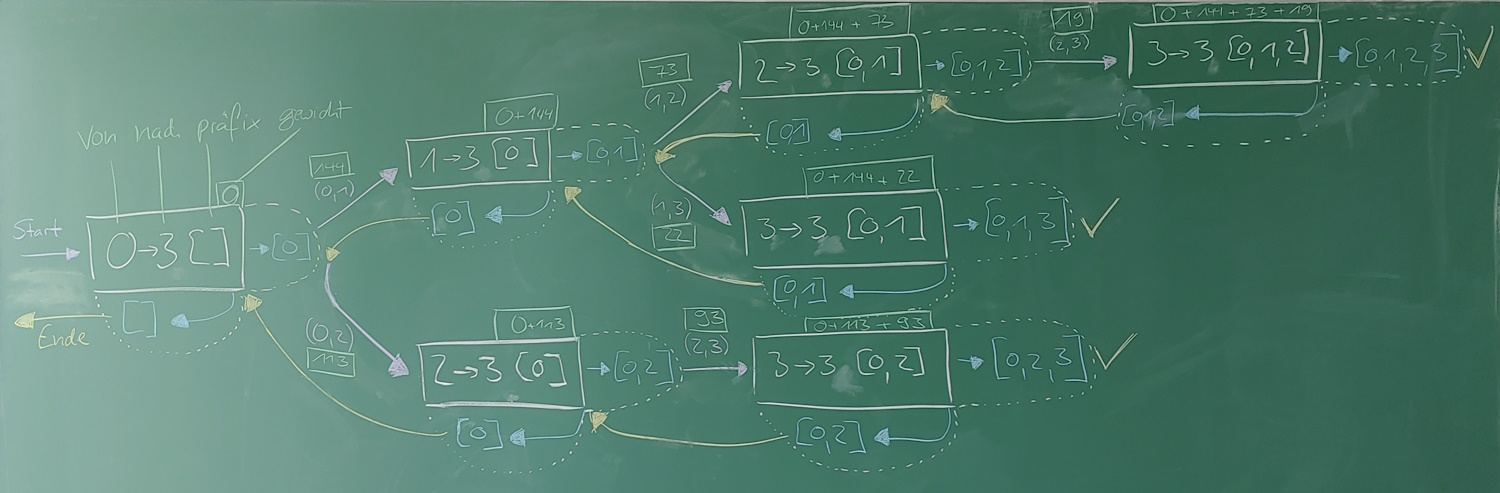 Von nach präfix gewicht
0
Start
0→3 []
→[0]
[]
Ende
144
(0,1)
0+144
1→3 [0]
→[0,1]
[0]
73
(1,2)
0+144+73
2→3 [0,1]
→[0,1,2]
[0,1]
19
(2,3)
0+144+73+19
3→3 [0,1,2]
→[0,1,2,3] ✓
[0,1,2]
(1,3)
22
0+144+22
3→3 [0,1]
→[0,1,3] ✓
[0,1]
(0,2)
113
0+113
2→3 [0]
→[0,2]
[0]
93
(2,3)
0+113+93
3→3 [0,2]
→[0,2,3] ✓
[0,2]